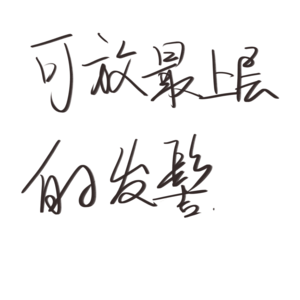 可放最上层
的发髻.